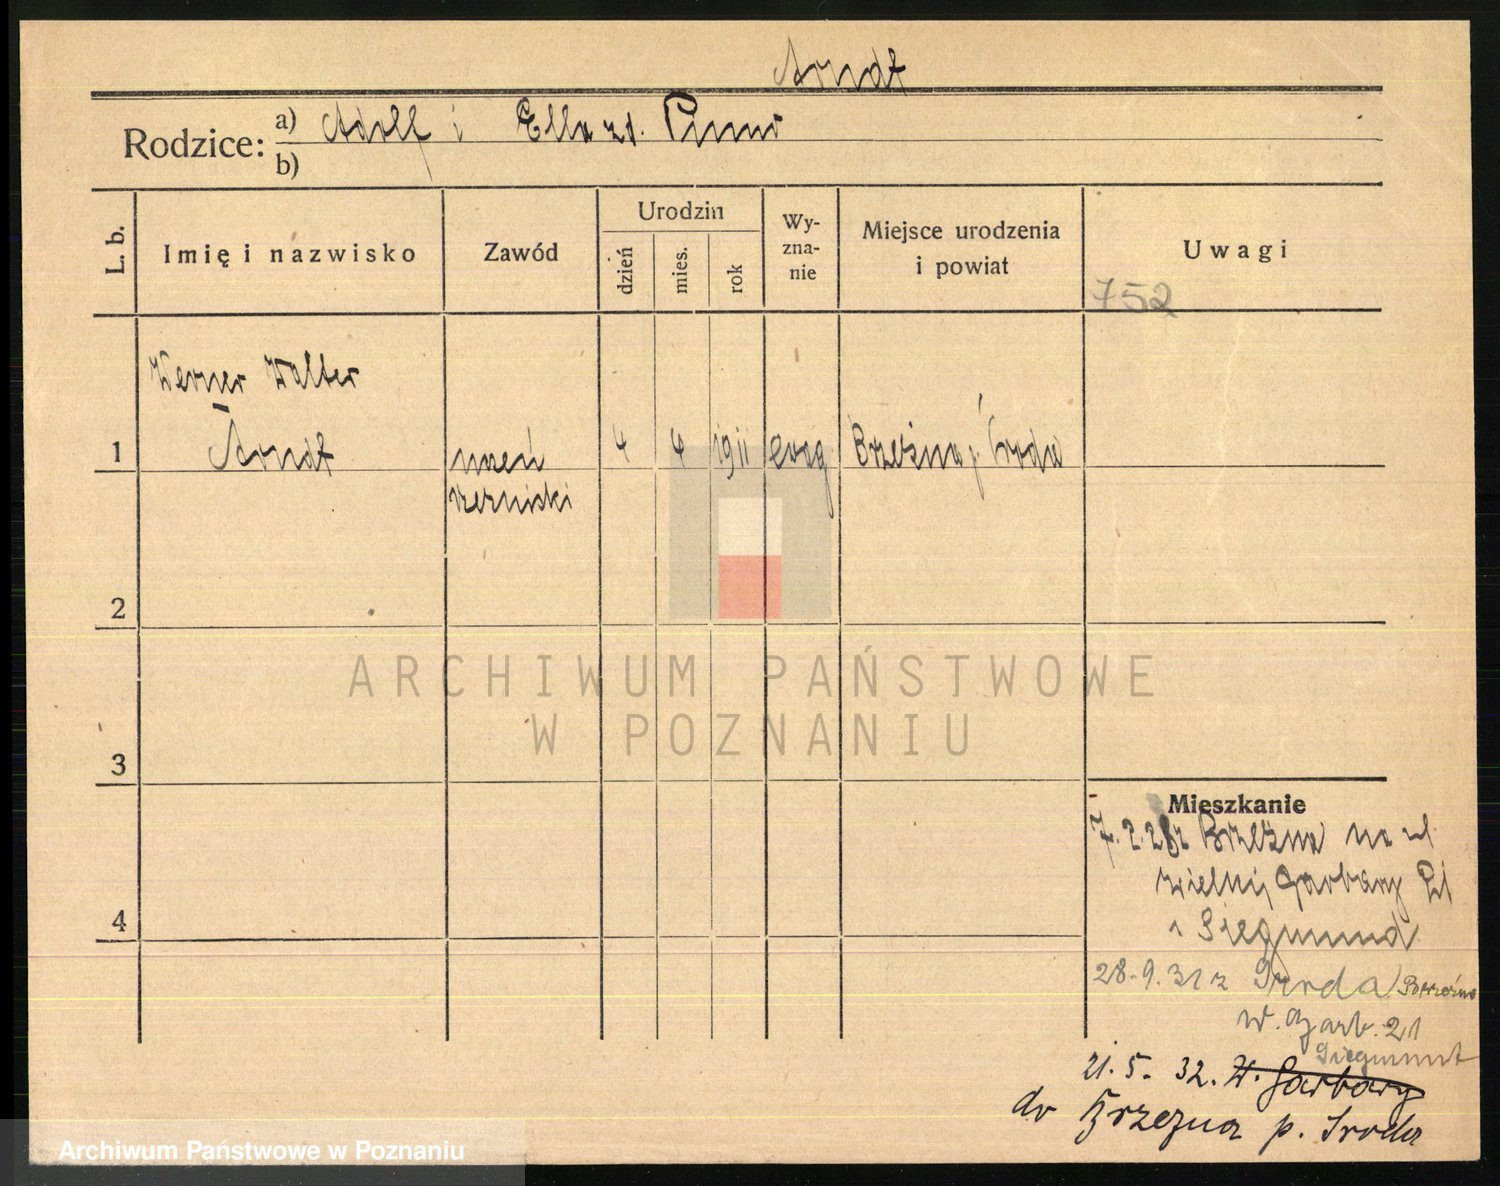 Arndt
Rodzice: a) Adolf i Ella zd.
b)
L. b.
Imię i nazwisko
Zawód
Urodzin
dzień
mies.
rok
Wy-
zna-
nie
Miejsce urodzenia
i powiat
Uwagi
752
Werner Walter
1 Arndt 4 4 1911 ewag Brzeźna p. Środa
uczeń
rzeźnicki
2
3
4
Mieszkanie
7.2.28 z Brzeźna na ul
wielkij Garbary 21
Siegmund
28.9.31 z Środa
W. Garb. 21
Siegmund
21.5.32. W. Garbary
do Brzezna p. Sroda
ARCHIWUM PAŃSTWOWE
W POZNANIU
Archiwum Państwowe w Poznaniu